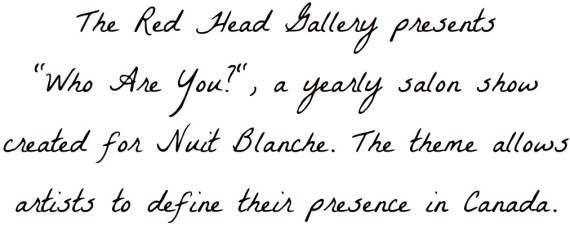 The Red Head Gallery presents
"Who Are You?", a yearly salon show
created for Nuit Blanche. The theme allows
artists to define their presence in Canada.